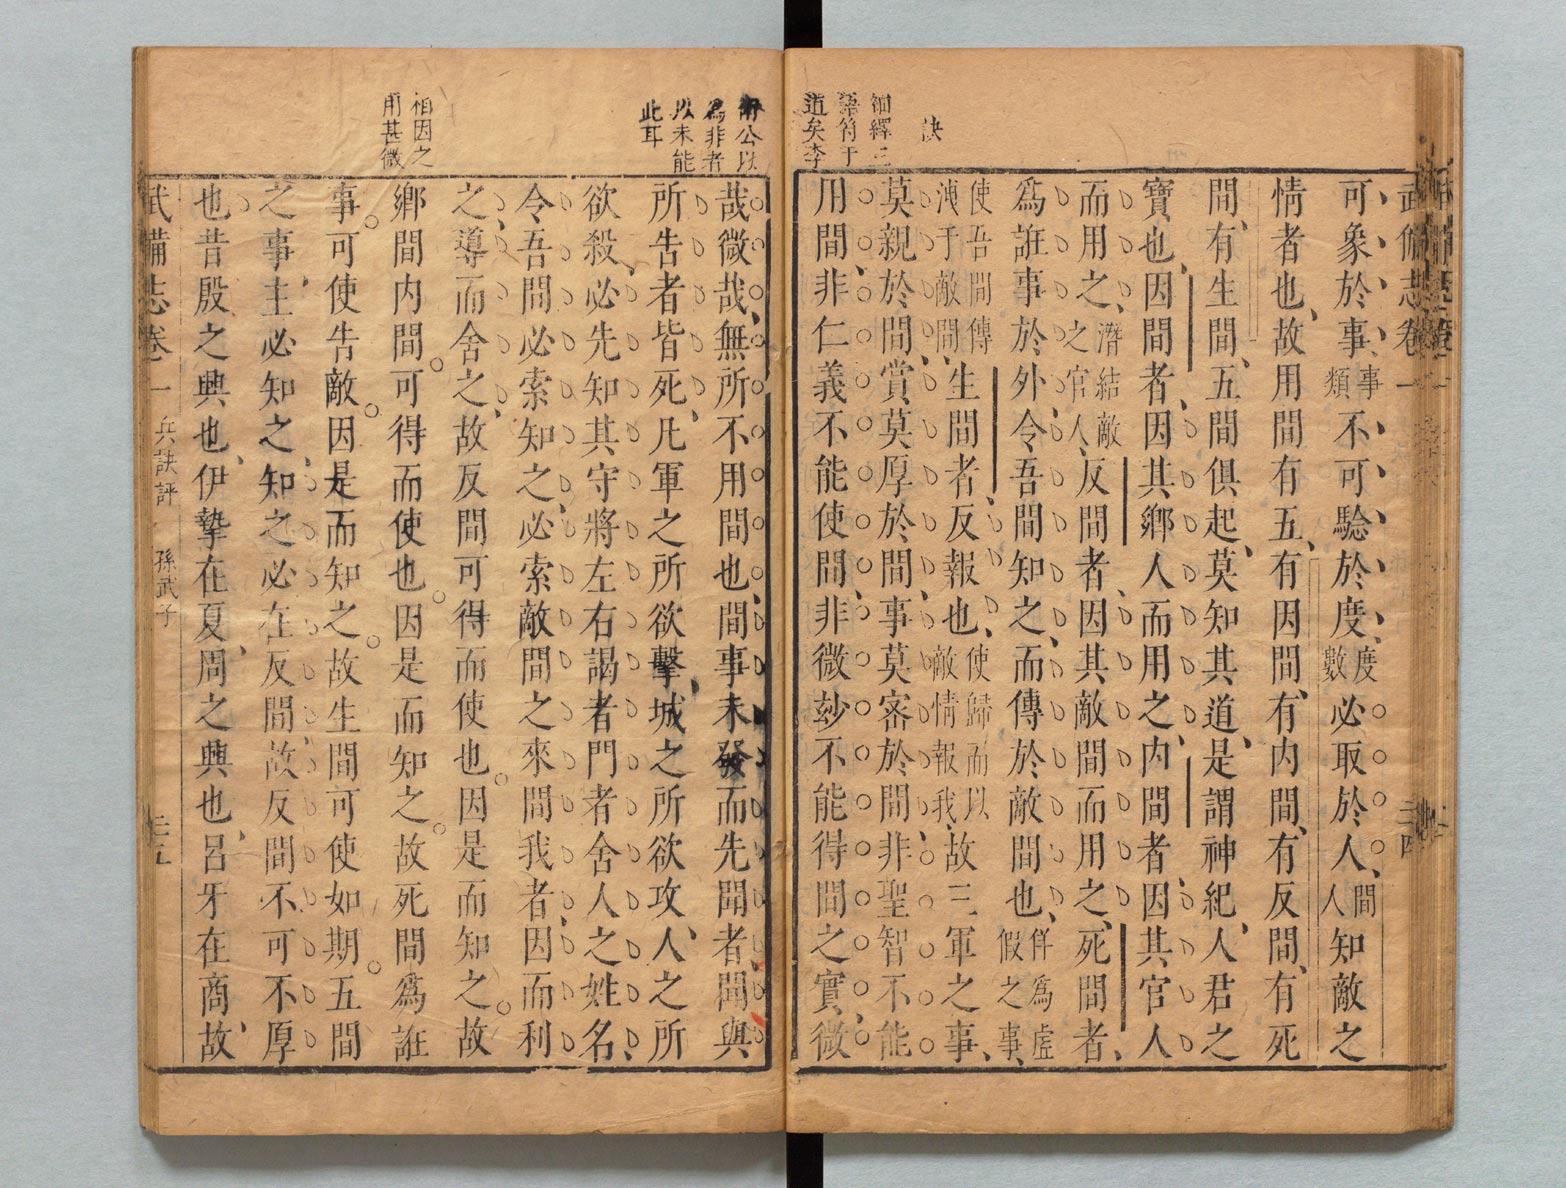 訣
細繹三
語符于
道矣李
武備志卷一
可象於事事類不可驗於度度數必取於人間人知敵之
情者也故用間有五有因間有内間有反間有死
間有生間五間俱起莫知其道是謂神紀人君之
寶也因間者因其鄉人而用之内間者因其官人
而用之潛結敵之官人反間者因其敵間而用之死間者
爲誑事於外令吾間知之而傳於敵間也佯爲虛假之事
使吾間傳洩于敵間生間者反報也使歸而以敵情報我故三軍之事
莫親於間賞莫厚於間事莫密於間非聖智不能
用間非仁義不能使間非微玅不能得間之實微
衛公以
爲非者
以未能
此耳
相因之
用甚微
哉微哉無所不用間也間事未發而先聞者聞與
所告者皆死凡軍之所欲擊城之所欲攻人之所
欲殺必先知其守將左右謁者門者舍人之姓名
令吾間必索知之必索敵間之來間我者因而利
之導而舍之故反間可得而使也因是而知之故
鄉間内間可得而使也因是而知之故死間爲誑
事可使告敵因是而知之故生間可使如期五間
之事主必知之知之必在反間故反間不可不厚
也昔殷之興也伊摯在夏周之興也呂牙在商故
武備志卷一 兵訣評 孫武子